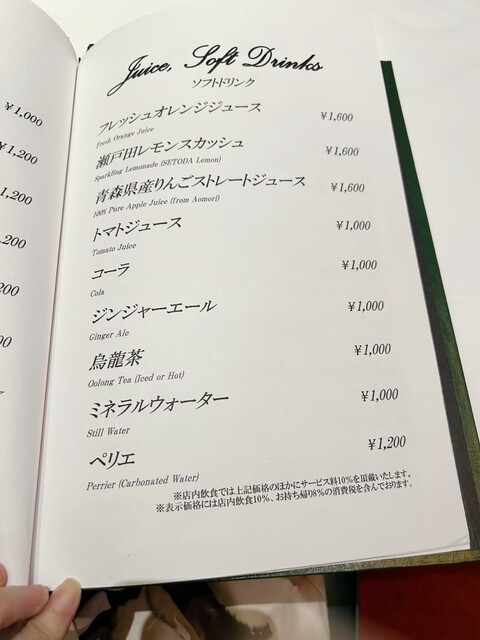 Juice, Soft Drinks
ソフトドリンク
フレッシュオレンジジュース ¥1,600
Fresh Orange Juice
瀬戸田レモンスカッシュ ¥1,600
Sparkling Lemonade (SETODA Lemon)
青森県産りんごストレートジュース ¥1,600
100% Pure Apple Juice (from Aomori)
トマトジュース ¥1,000
Tomato Juice
コーラ ¥1,000
Cola
ジンジャーエール ¥1,000
Ginger Ale
烏龍茶 ¥1,000
Oolong Tea (Iced or Hot)
ミネラルウォーター ¥1,000
Still Water
ペリエ ¥1,200
Perrier (Carbonated Water)
※店内飲食では上記価格のほかにサービス料10%を頂戴いたします。
※表示価格には店内飲食10%、お持ち帰り8%の消費税を含んでおります。
¥1,000
¥1,200
1,200
,200
200
00